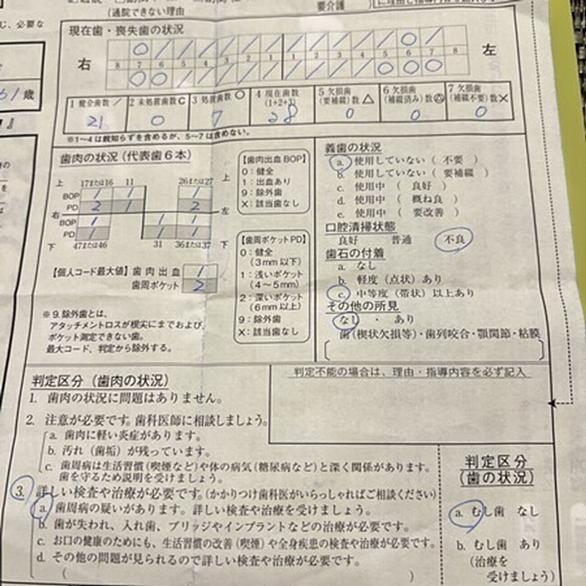 (通院できない理由
要介護
じ、必要な
現在歯・喪失歯の状況
右
左
8 7 6 5 4 3 2 1 1 2 3 4 5 6 7 8
1 健全歯数 / 2 未処置歯数 C 3 処置歯数 ○ 4 現在歯数 (1+2+3) 5 欠損歯 (要補綴)数 △ 6 欠損歯 (補綴済み)数 7 欠損歯 (補綴不要)数 ×
21 0 7 28 0 0 0
61歳
※1~4は親知らずを含めるが、5~7は含めない。
歯肉の状況(代表歯6本)
上 17または16 11 26または27 上
BOP 1 1 1
右 PD 2 1 2 左
BOP 1 1 1
PD 1 1
下 47または46 31 36または37 下
【個人コード最大値】歯肉出血 1
歯周ポケット 2
【歯肉出血BOP】
0:健全
1:出血あり
9:除外歯
X:該当歯なし
【歯周ポケットPD】
0:健全
(3mm以下)
1:浅いポケット
(4~5mm)
2:深いポケット
(6mm以上)
9:除外歯
X:該当歯なし
※9.除外歯とは、
アタッチメントロスが根尖にまでおよび、
ポケット測定できない歯。
最大コード、判定から除外する。
義歯の状況
a. 使用していない(不要)
b. 使用していない(要補綴)
c. 使用中(良好)
d. 使用中(概ね良)
e. 使用中(要改善)
口腔清掃状態
良好 普通 不良
歯石の付着
a. なし
b. 軽度(点状)あり
c. 中等度(帯状)以上あり
その他の所見
なし・あり
歯(楔状欠損等)・歯列咬合・顎関節・粘膜
判定区分(歯肉の状況)
1. 歯肉の状況に問題はありません。
2. 注意が必要です。歯科医師に相談しましょう。
a. 歯肉に軽い炎症があります。
b. 汚れ(歯垢)が残っています。
c. 歯周病は生活習慣(喫煙など)や体の病気(糖尿病など)と深く関係があります。
歯を守るため説明を受けましょう。
3. 詳しい検査や治療が必要です。(かかりつけ歯科医がいらっしゃればご相談ください)
a. 歯周病の疑いがあります。詳しい検査や治療を受けましょう。
b. 歯が失われ、入れ歯、ブリッジやインプラントなどの治療が必要です。
c. お口の健康のためにも、生活習慣の改善(喫煙)や全身疾患の検査や治療が必要です。
d. その他の問題が見られるので詳しい検査や治療が必要です。
判定不能の場合は、理由・指導内容を必ず記入
判定区分
(歯の状況)
a. むし歯 なし
b. むし歯 あり
(治療を
受けましょう)